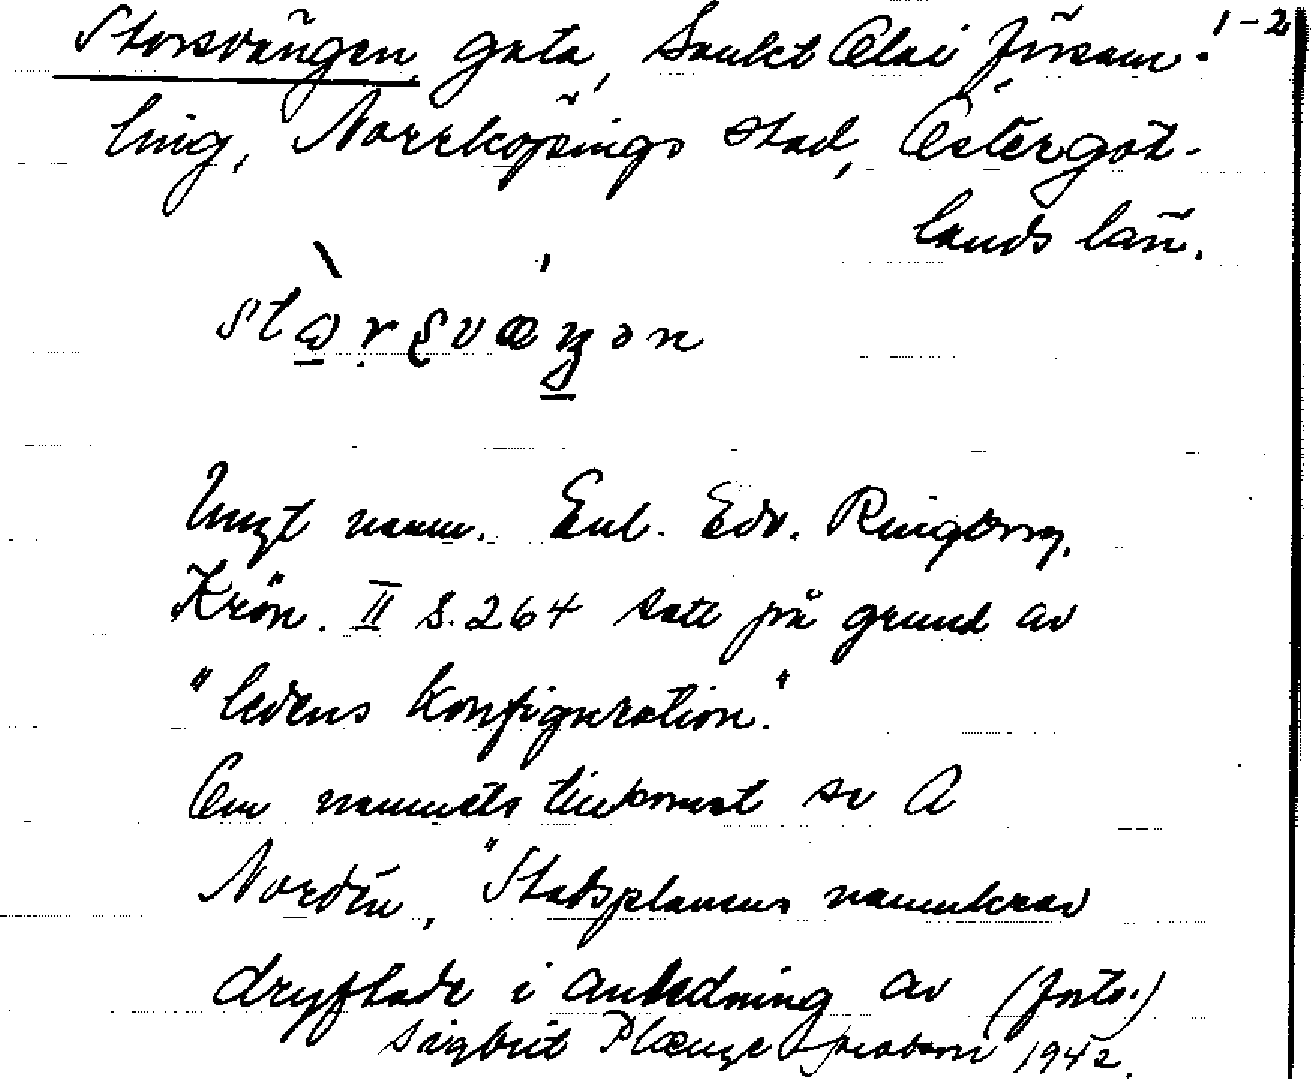 1-2
Storsvängen gata, Sankt Olai försam-
ling, Norrköpings stad, Östergöt-
lands län.
Ungt namn. Enl. Edv. Ringborg,
Krön. II s. 264 satt på grund av
"ledens konfiguration."
Om namnets tillkomst se A
Nordén, "Stadsplanens namnkrav
dryftade i anledning av (forts.)
Sigbrit Plænge Jacobson 1942.